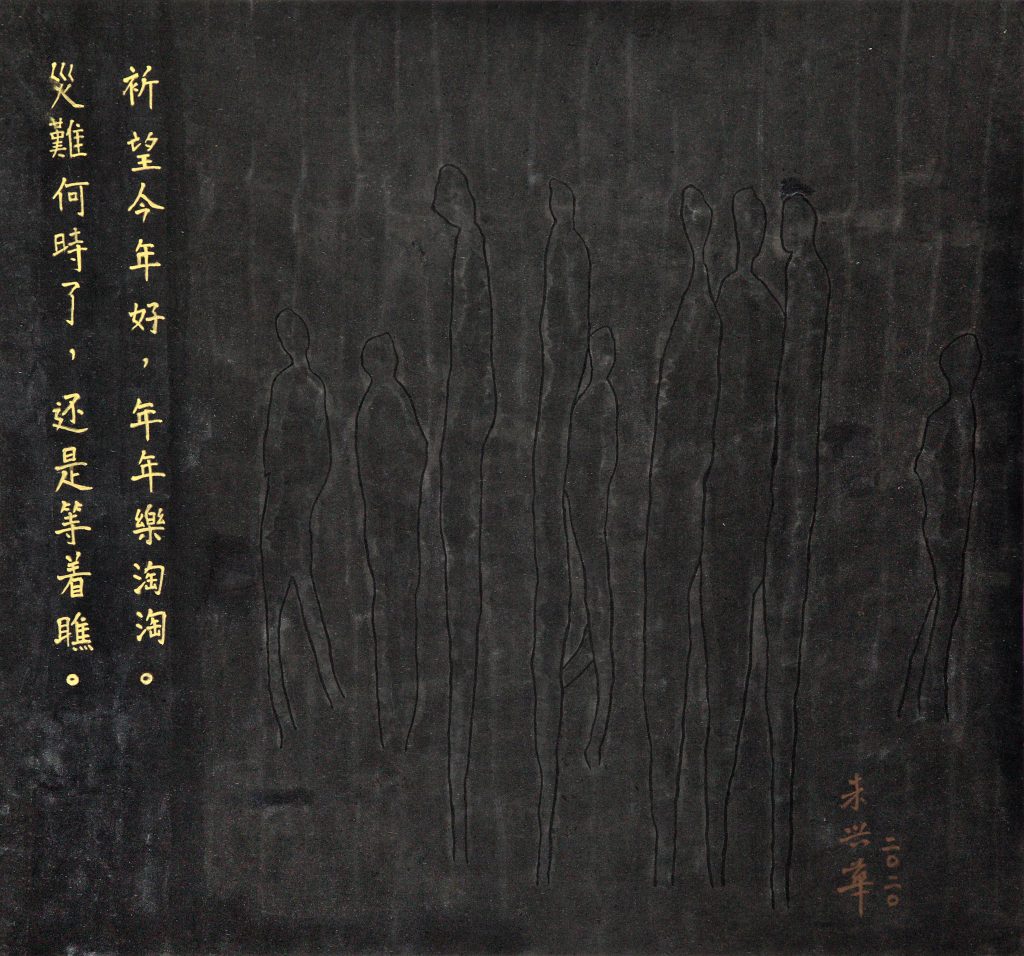 祈望今年好，年年樂淘淘。
災難何時了，还是等着瞧。
朱兴华
二〇二〇